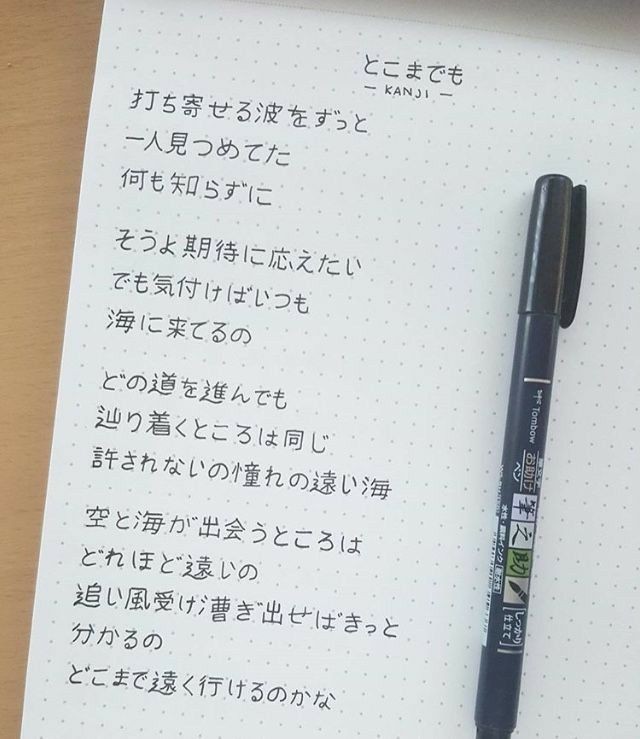 とこまでも
— KANJI —
打ち寄せる波をずっと
一人見つめてた
何も知らずに
そうよ期待に応えたい
でも気付けばいつも
海に来てるの
どの道を進んでも
辿り着くところは同じ
許されないの憧れの遠い海
空と海が出会うところは
どれほど遠いの
追い風受け漕ぎ出せばきっと
分かるの
どこまで遠く行けるのかな
Tombow
お助け
ペン
筆之助
しっかり
仕立て